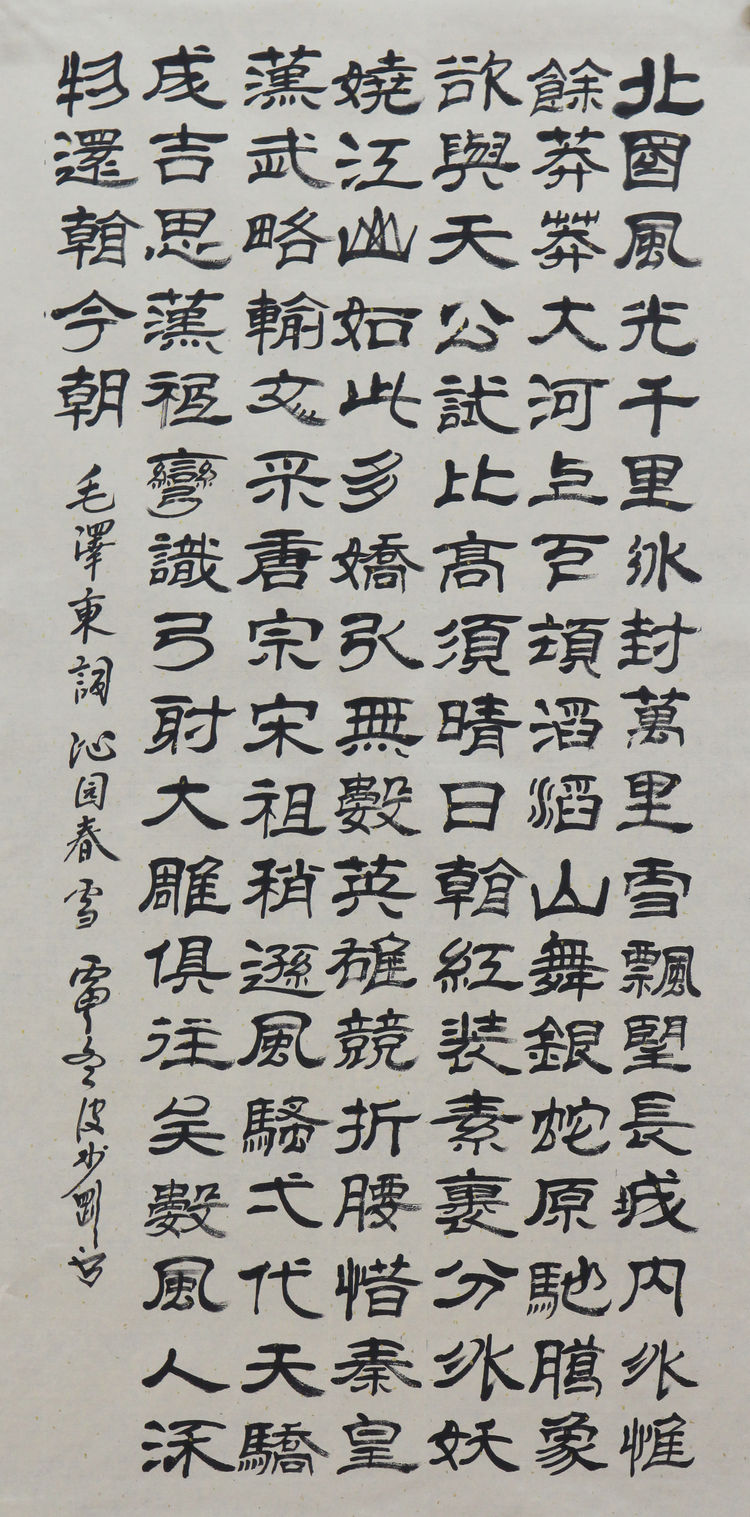 北國風光千里冰封萬里雪飄朢長城内外惟
餘莽莽大河上下頓滔滔山舞銀蛇原馳臘象
欲與天公試比高須晴日看紅装素裹分外妖
嬈江山如此多嬌引無數英雄競折腰惜秦皇
漢武略輸文采唐宗宋祖稍遜風騷弌代天驕
成吉思漢祗彎識弓射大雕俱往矣數風人深
物還看今朝
毛澤東詞沁园春雪